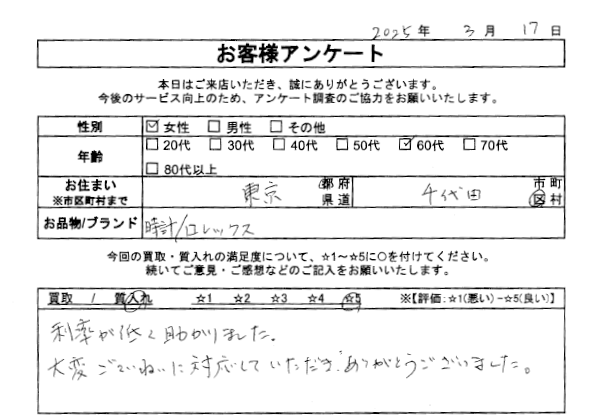 2025年 3月 17日
お客様アンケート
本日はご来店いただき、誠にありがとうございます。
今後のサービス向上のため、アンケート調査のご協力をお願いいたします。
性別 ☑女性 □男性 □その他
年齢 □20代 □30代 □40代 □50代 ☑60代 □70代
□80代以上
お住まい ※市区町村まで 東京 都府県道 千代田 市町区村
お品物/ブランド 時計/ロレックス
今回の買取・質入れの満足度について、☆1～☆5に○を付けてください。
続いてご意見・ご感想などのご記入をお願いいたします。
買取 / 質入れ ☆1 ☆2 ☆3 ☆4 ☆5 ※【評価:☆1(悪い)−☆5(良い)】
利率が低く助かりました。
大変ごていねいに対応していただき、ありがとうございました。